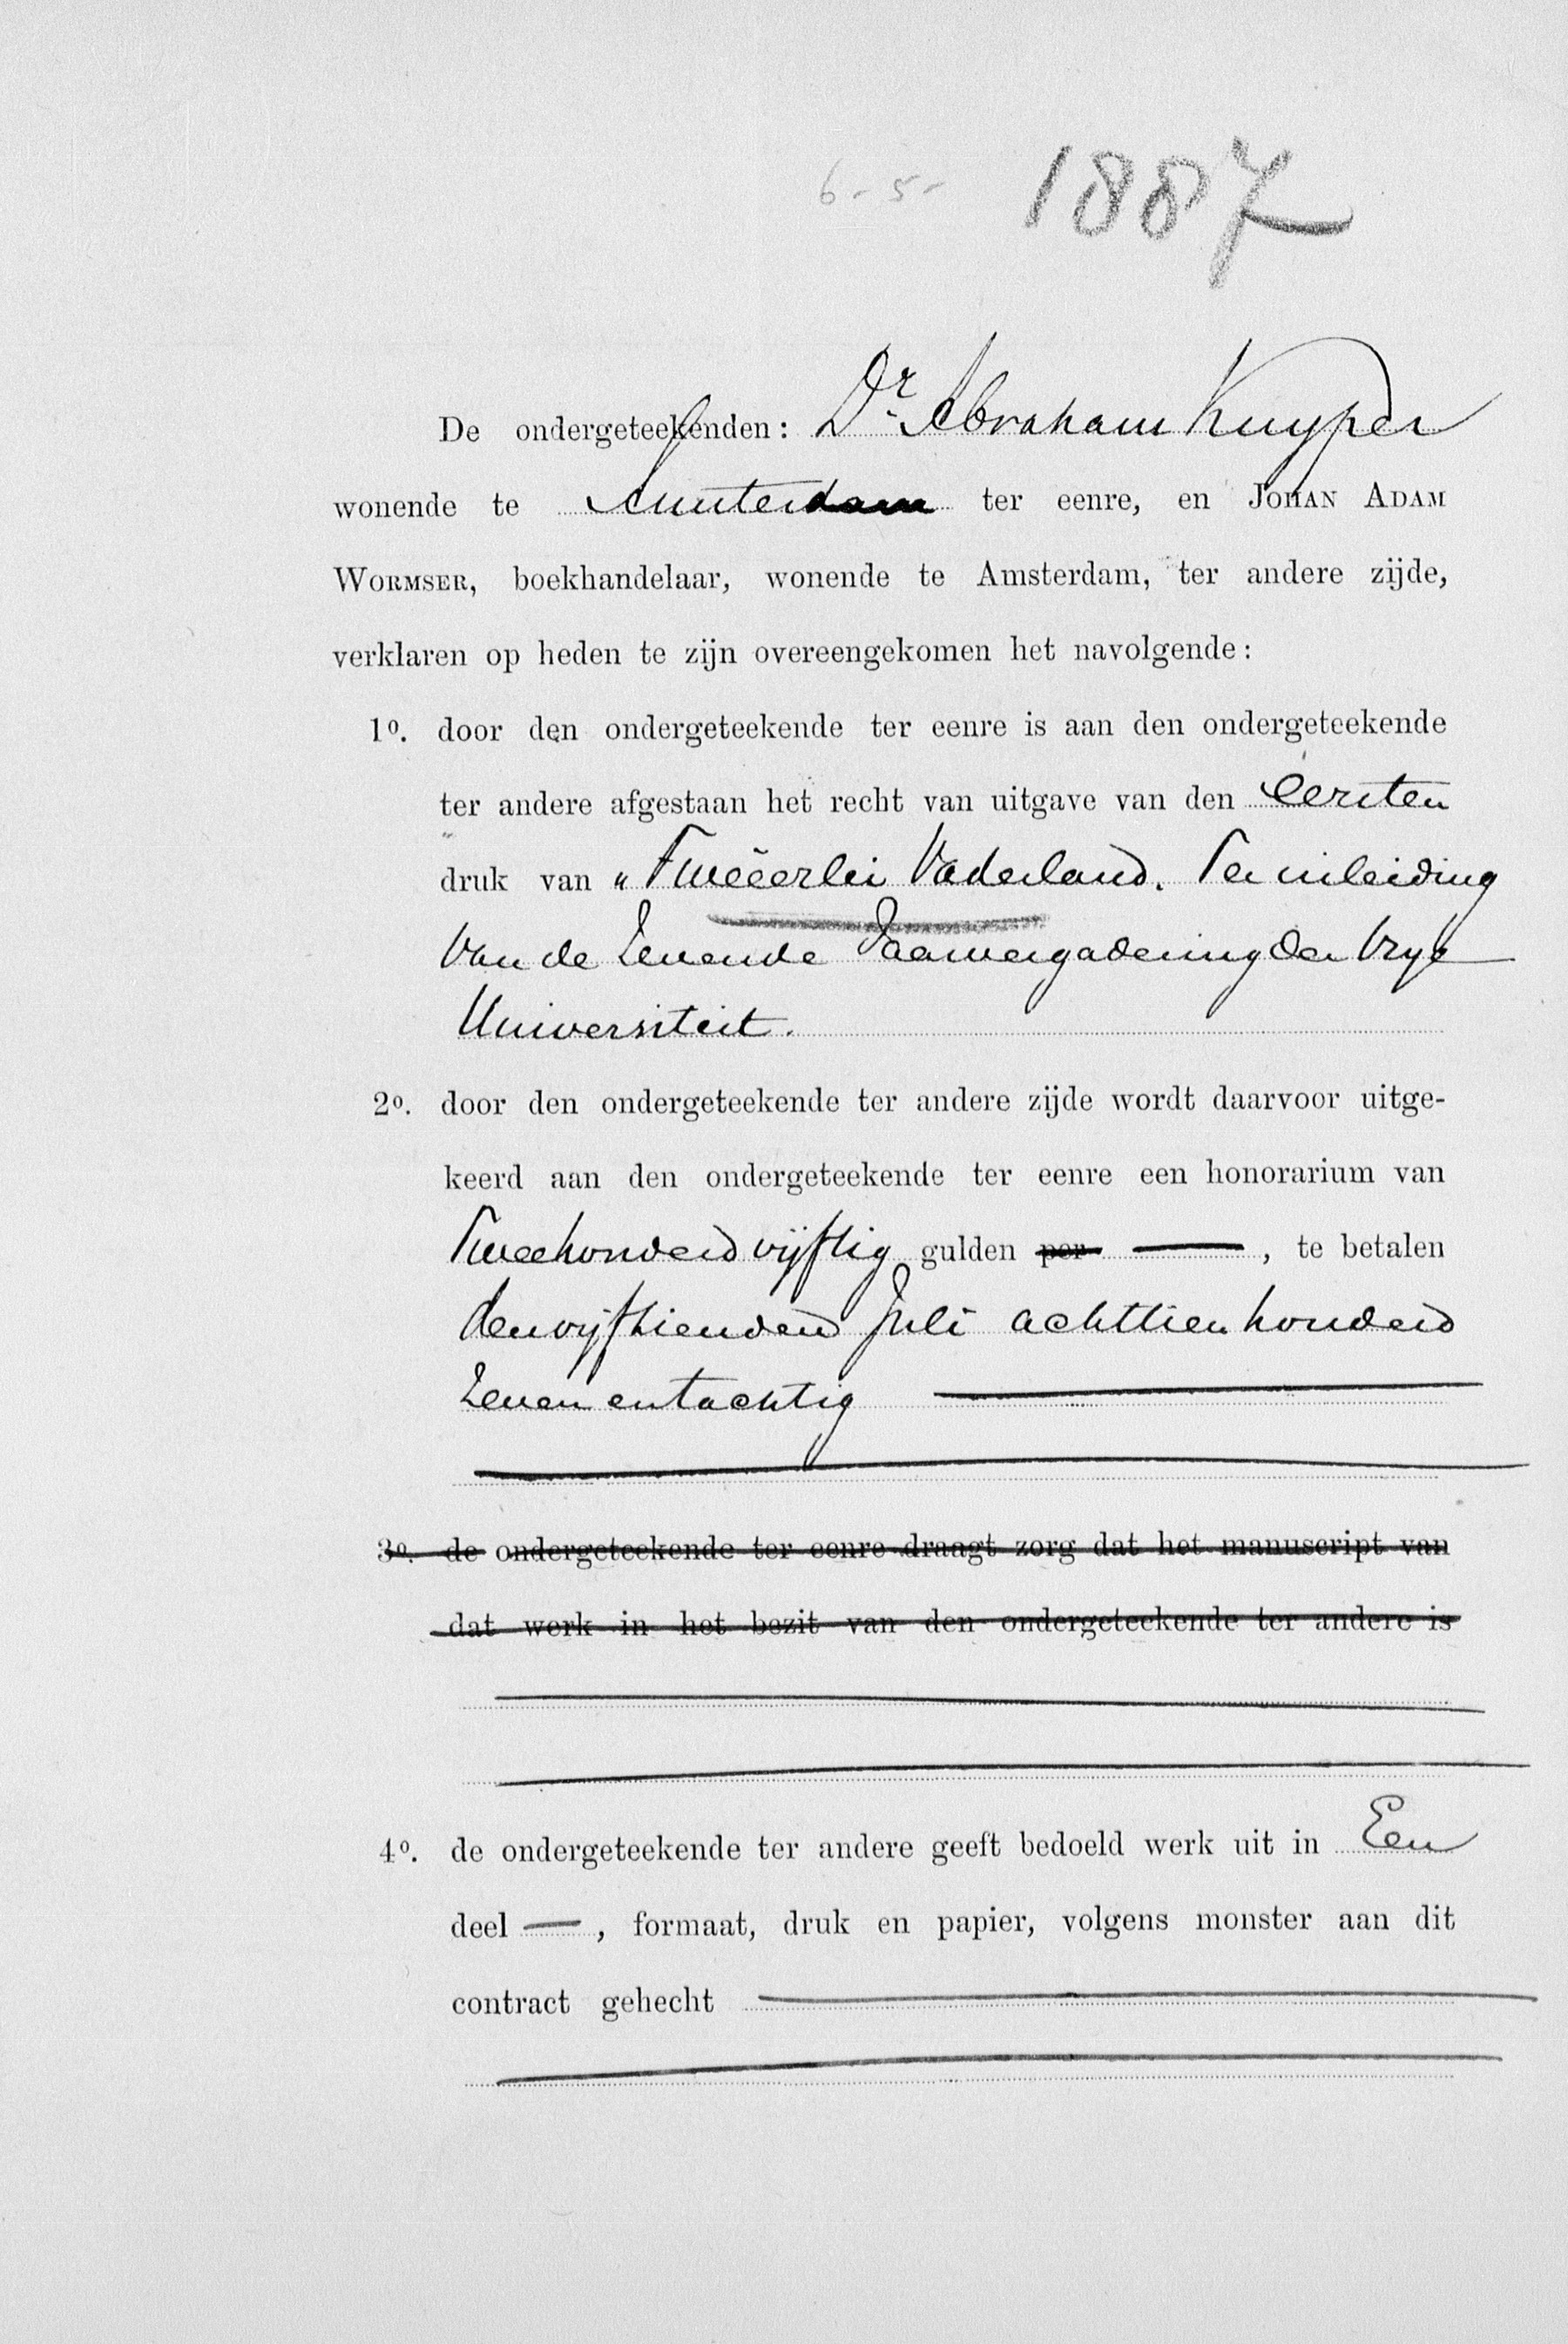 6-5- 1887
De ondergeteekenden: Dr. Abraham Kuyper
wonende te Amsterdam ter eenre, en JOHAN ADAM
WORMSER, boekhandelaar, wonende te Amsterdam, ter andere zijde,
verklaren op heden te zijn overeengekomen het navolgende:
1o. door den ondergeteekende ter eenre is aan den ondergeteekende
ter andere afgestaan het recht van uitgave van den eersten
druk van „Tweëerlei Vaderland. Ter inleiding
van de Zevende Jaarvergadering der Vrije
Universiteit.
2o. door den ondergeteekende ter andere zijde wordt daarvoor uitge-
keerd aan den ondergeteekende ter eenre een honorarium van
Tweehonderd vijftig gulden per —, te betalen
den vijftienden Juli achttienhonderd
zeven entachtig
3o. de ondergeteekende ter eenre draagt zorg dat het manuscript van
dat werk in het bezit van den ondergeteekende ter andere is
4o. de ondergeteekende ter andere geeft bedoeld werk uit in Een
deel —, formaat, druk en papier, volgens monster aan dit
contract gehecht